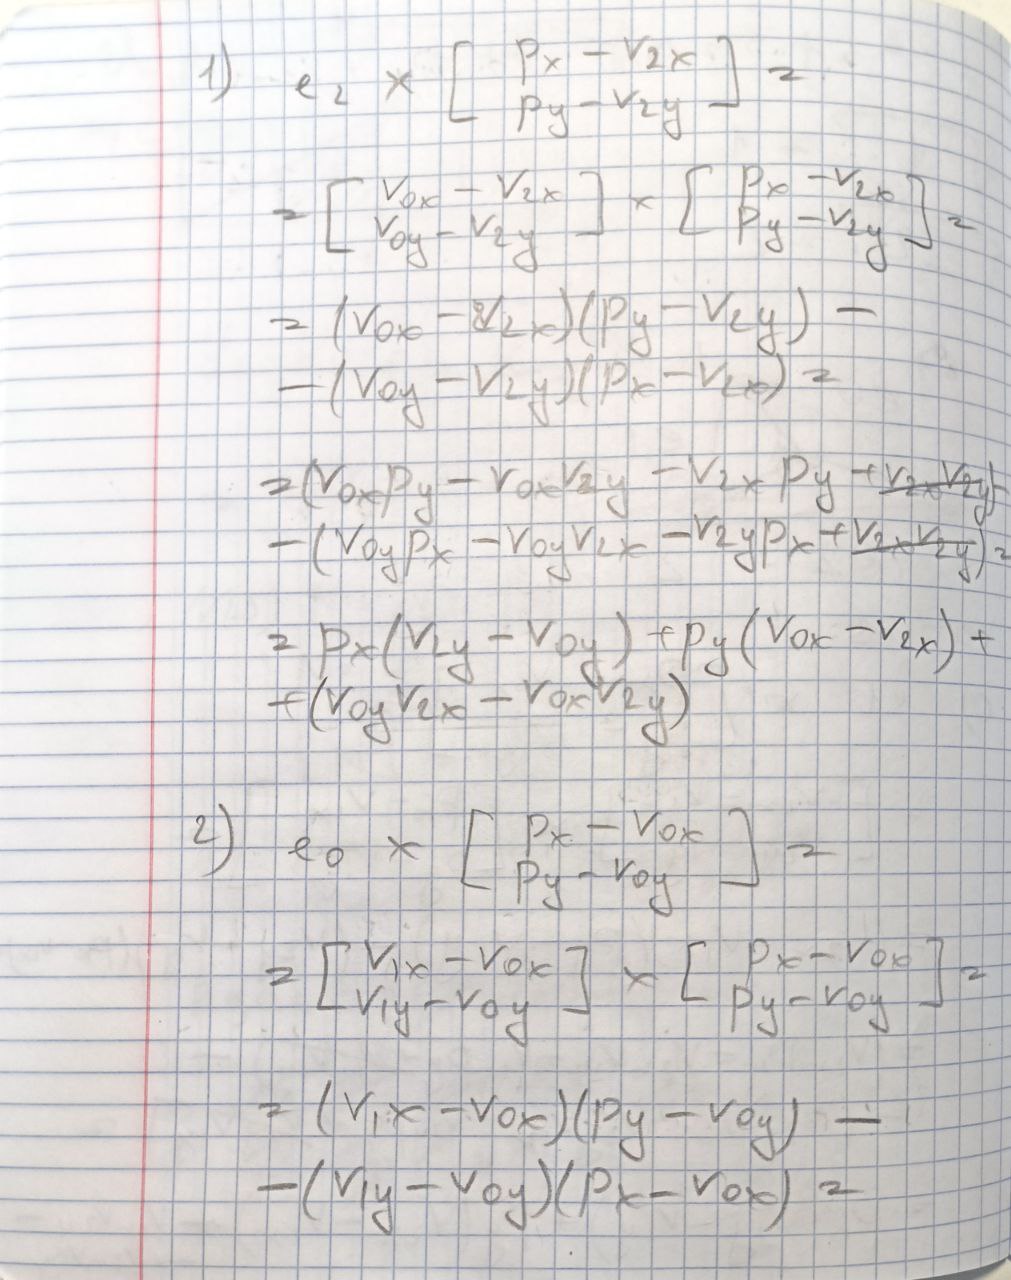 1) e₂ × [ pₓ − v₂ₓ ] =
[ p_y − v₂_y ]
= [ v₀ₓ − v₂ₓ ] × [ pₓ − v₂ₓ ] =
[ v₀_y − v₂_y ] [ p_y − v₂_y ]
= (v₀ₓ − v₂ₓ)(p_y − v₂_y) −
− (v₀_y − v₂_y)(pₓ − v₂ₓ) =
= (v₀ₓp_y − v₀ₓv₂_y − v₂ₓp_y + v₂ₓv₂_y) −
− (v₀_ypₓ − v₀_yv₂ₓ − v₂_ypₓ + v₂ₓv₂_y) =
= pₓ(v₂_y − v₀_y) + p_y(v₀ₓ − v₂ₓ) +
+ (v₀_yv₂ₓ − v₀ₓv₂_y)
2) e₀ × [ pₓ − v₀ₓ ] =
[ p_y − v₀_y ]
= [ v₁ₓ − v₀ₓ ] × [ pₓ − v₀ₓ ] =
[ v₁_y − v₀_y ] [ p_y − v₀_y ]
= (v₁ₓ − v₀ₓ)(p_y − v₀_y) −
− (v₁_y − v₀_y)(pₓ − v₀ₓ) =